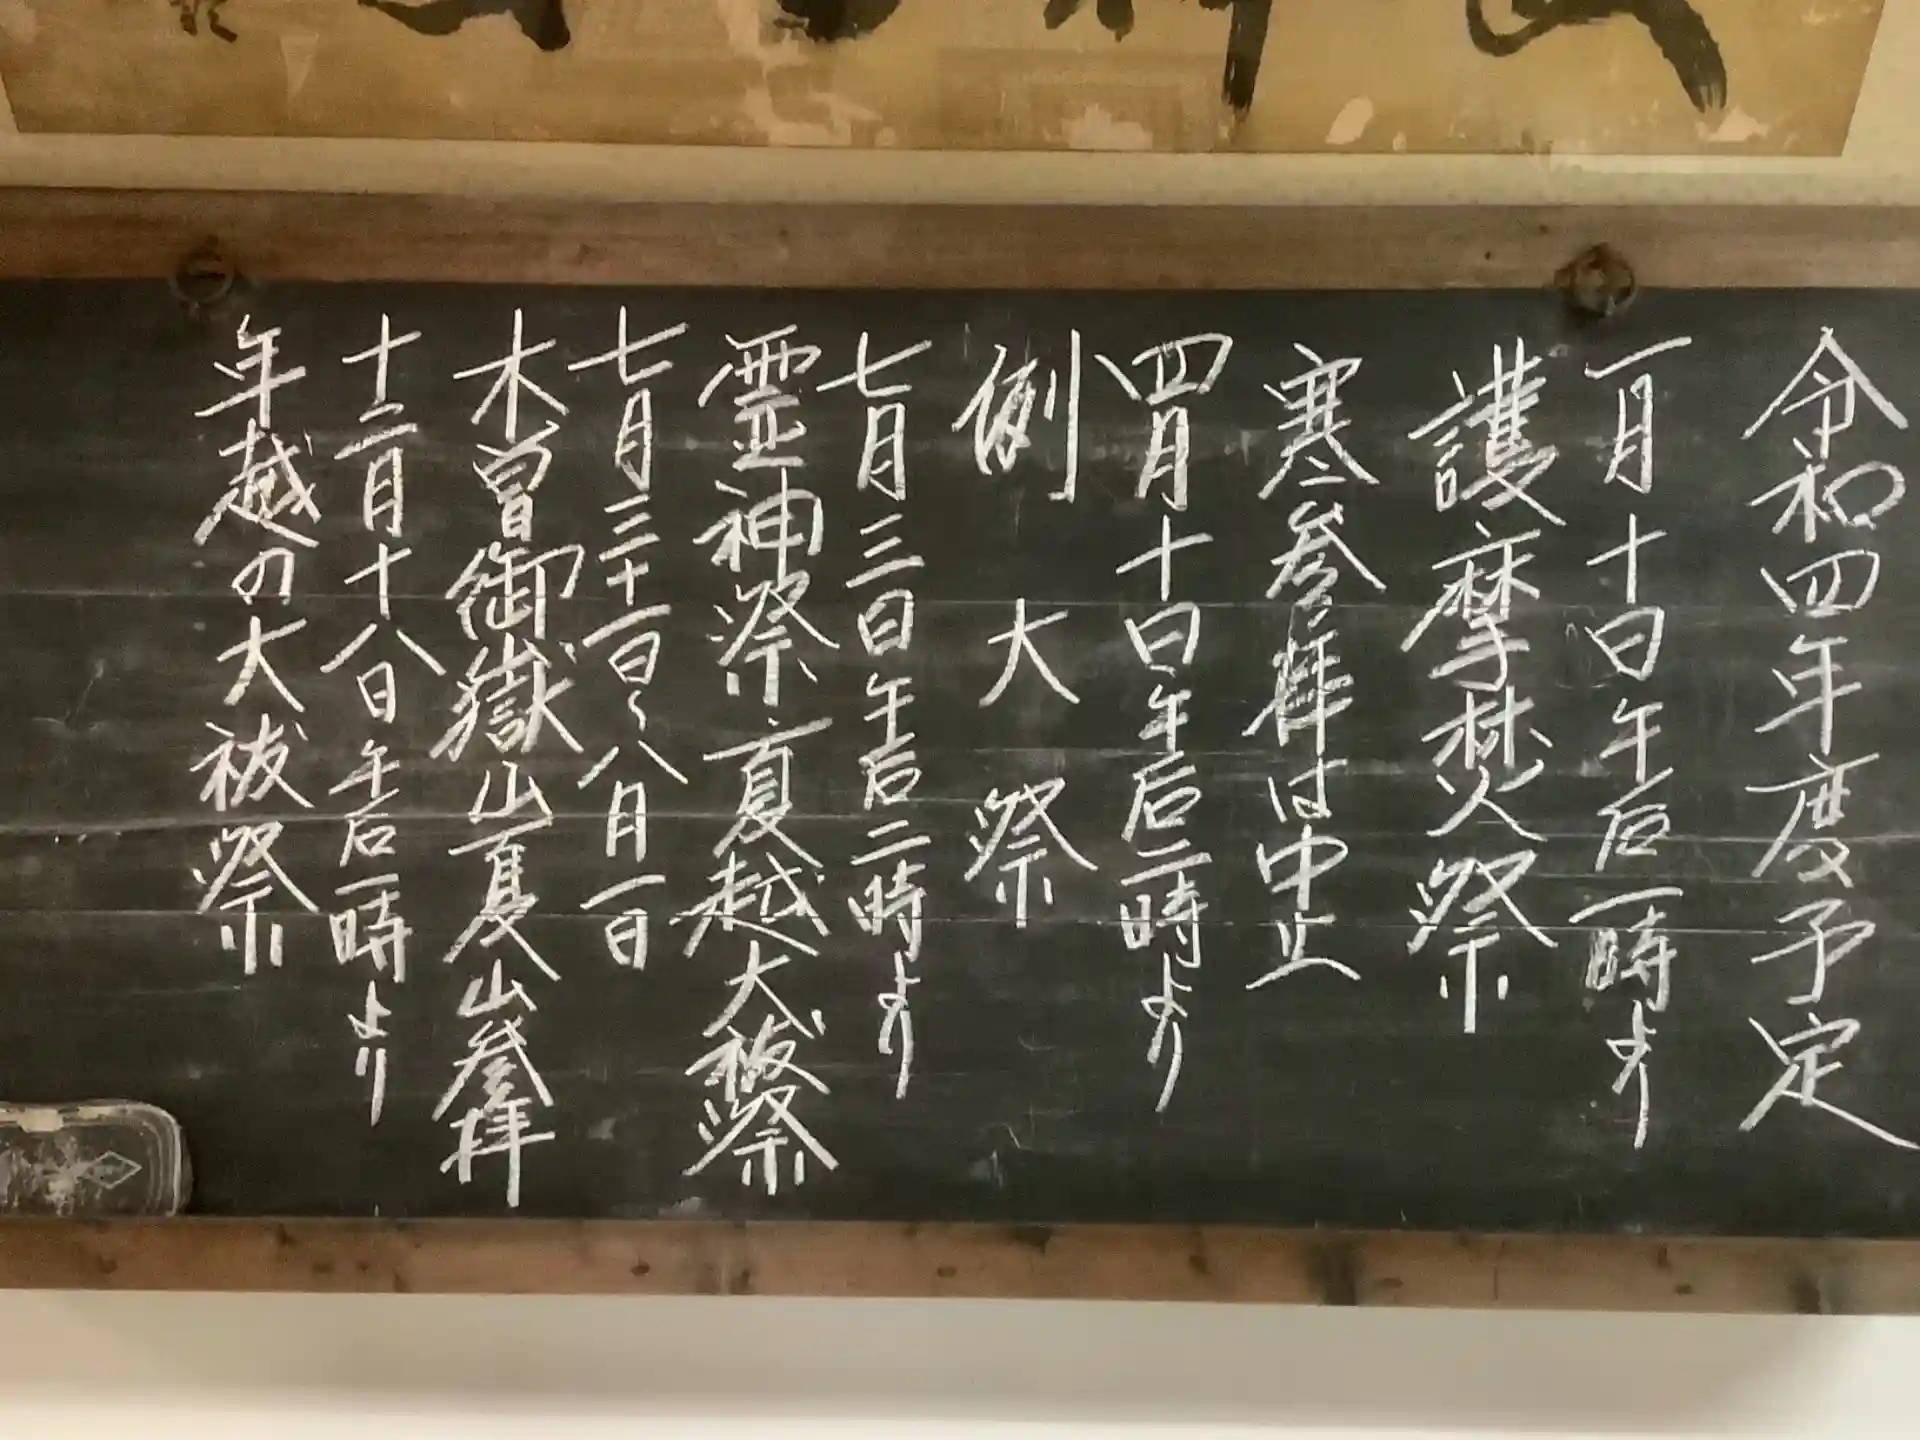 令和四年度予定
一月十日午后一時より
護摩焚火祭
寒参拝は中止
四月十日午后二時より
例大祭
七月三日午后二時より
霊神祭夏越大祓祭
七月三十一日〜八月一日
木曽御嶽山夏山参拝
十二月十八日午后一時より
年越の大祓祭